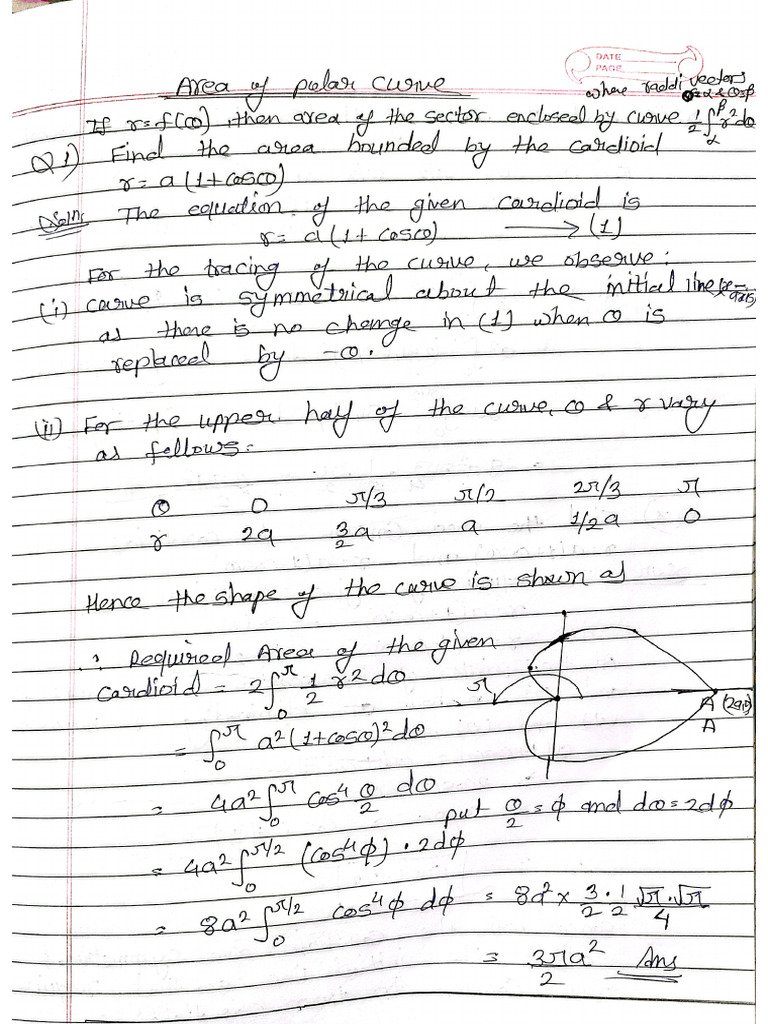 DATE
PAGE
Area of polar curve
where raddi vectors
If r = f(θ), then area of the sector enclosed by curve 1/2 ∫_α^β r² dθ
Q1) Find the area bounded by the cardioid
r = a(1+cosθ)
Soln: The equation of the given cardioid is
r = a(1+cosθ) ⟶ (1)
For the tracing of the curve, we observe:
(i) curve is symmetrical about the initial line (x-axis)
as there is no change in (1) when θ is
replaced by -θ.
(ii) For the upper half of the curve, θ & r vary
as follows:
θ 0 π/3 π/2 2π/3 π
r 2a 3/2 a a 1/2 a 0
Hence the shape of the curve is shown as
∴ Required Area of the given
cardioid = 2∫_0^π 1/2 r² dθ
π
A (2a,0)
A
= ∫_0^π a²(1+cosθ)² dθ
= 4a² ∫_0^π cos⁴ θ/2 dθ
put θ/2 = ϕ and dθ = 2dϕ
= 4a² ∫_0^π/2 (cos⁴ϕ) · 2dϕ
= 8a² ∫_0^π/2 cos⁴ϕ dϕ = 8a² × 3/2 · 1/2 √π·√π/4
= 3πa²/2 Ans